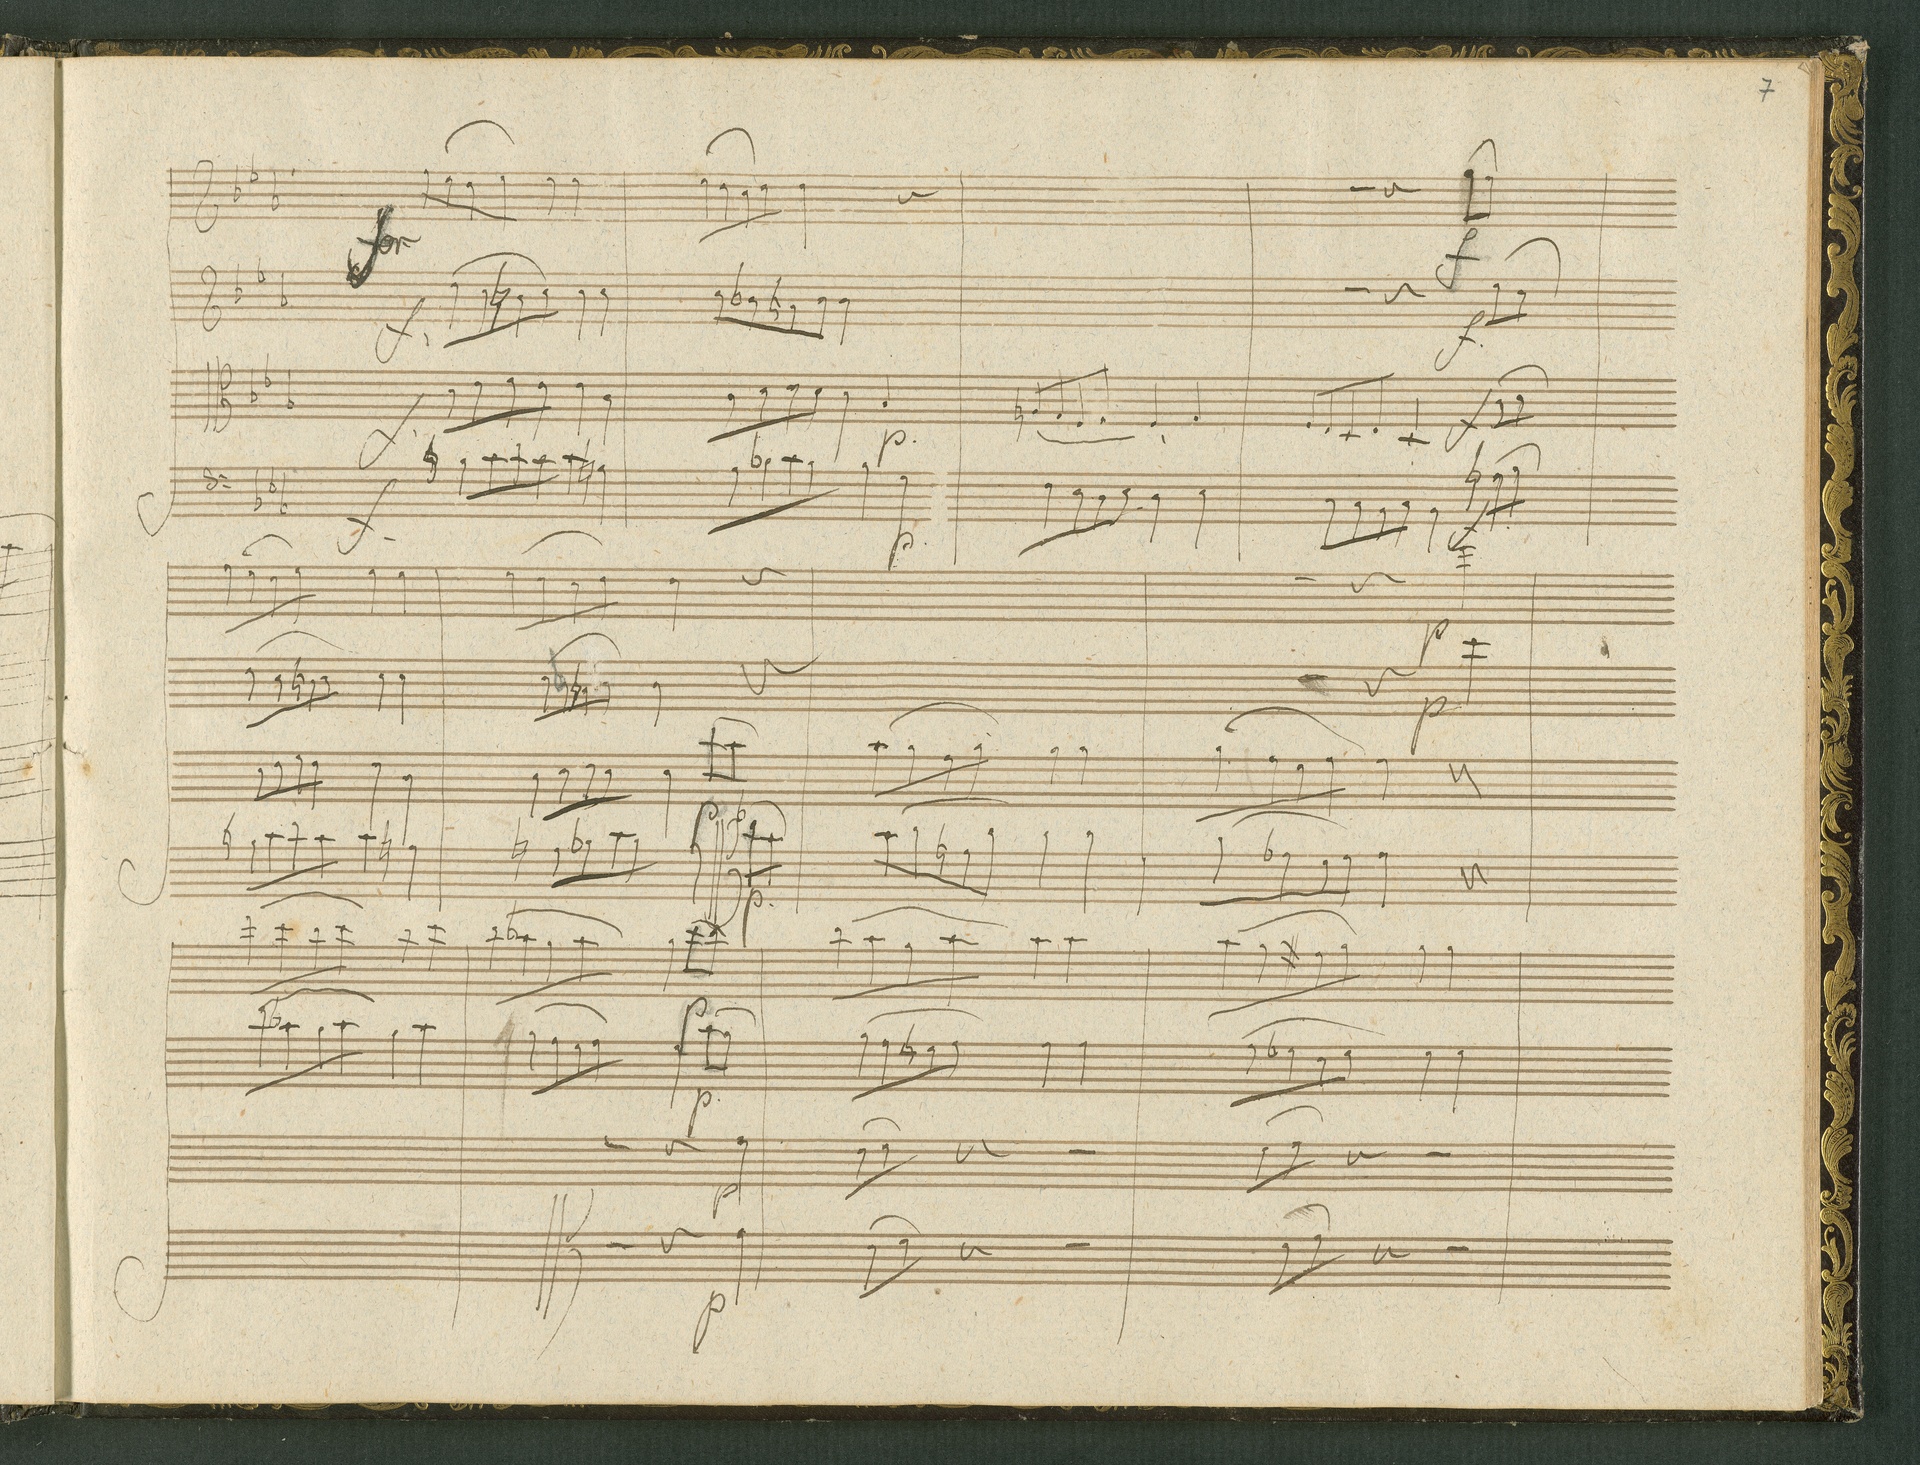 7
for
f
f.
f.
f.
f.
p.
p.
f
f
p
p
p.
p.
p
p